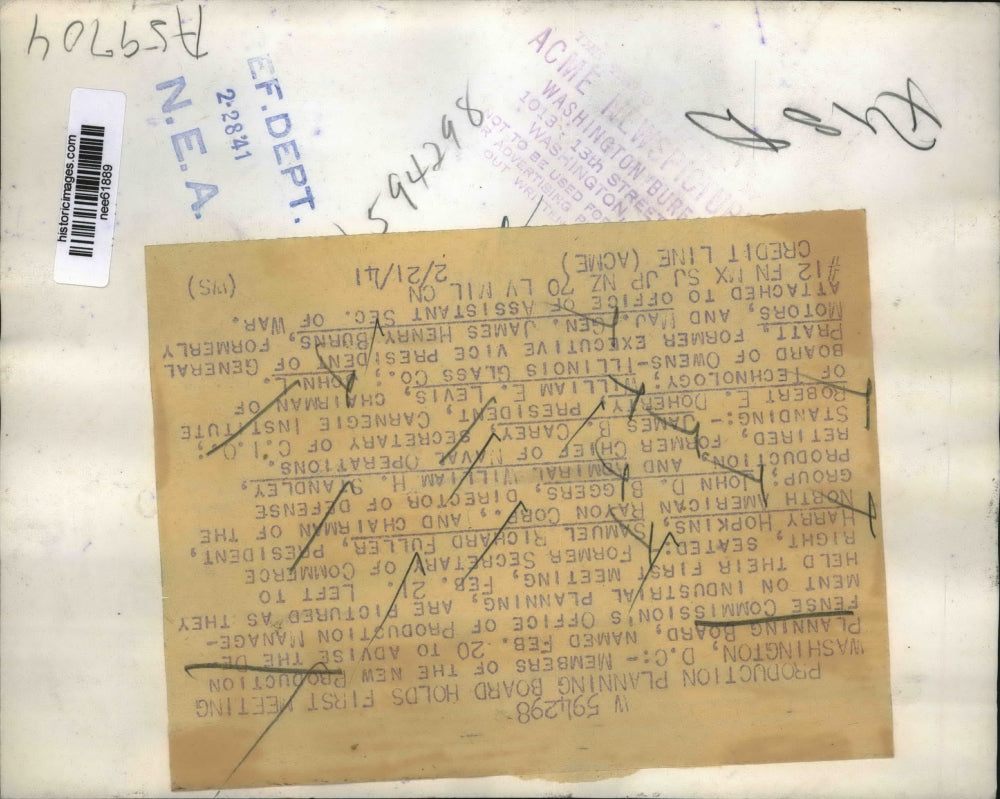 W 594298
PRODUCTION PLANNING BOARD HOLDS FIRST MEETING
WASHINGTON, D.C:- MEMBERS OF THE NEW PRODUCTION
PLANNING BOARD, NAMED FEB. 20 TO ADVISE THE DE-
FENSE COMMISSION'S OFFICE OF PRODUCTION MANAGE-
MENT ON INDUSTRIAL PLANNING, ARE PICTURED AS THEY
HELD THEIR FIRST MEETING, FEB. 21. LEFT TO
RIGHT, SEATED: FORMER SECRETARY OF COMMERCE
HARRY HOPKINS, SAMUEL RICHARD FULLER, PRESIDENT,
NORTH AMERICAN RAYON CORP., AND CHAIRMAN OF THE
GROUP; JOHN D. BIGGERS, DIRECTOR OF DEFENSE
PRODUCTION, AND ADMIRAL WILLIAM H. STANDLEY,
RETIRED, FORMER CHIEF OF NAVAL OPERATIONS.
STANDING:- JAMES B. CAREY, SECRETARY OF C.I.O.;
ROBERT E. DOHERTY, PRESIDENT, CARNEGIE INSTITUTE
OF TECHNOLOGY, WILLIAM E. LEVIS, CHAIRMAN OF
BOARD OF OWENS-ILLINOIS GLASS CO.; JOHN L.
PRATT, FORMER EXECUTIVE VICE PRESIDENT OF GENERAL
MOTORS, AND MAJ. GEN. JAMES HENRY BURNS, FORMERLY
ATTACHED TO OFFICE OF ASSISTANT SEC. OF WAR.
#12 FN MX SJ JP NZ 70 LV MIL CN
CREDIT LINE (ACME) 2/21/41 (WS)
A59704
594298
EF. DEPT.
2-28'41
N.E.A.
historicimages.com
nee61889
ACME NEWSPICTURES
WASHINGTON BUREAU
1013 - 13th STREET
WASHINGTON
NOT TO BE USED FOR
ADVERTISING
OUT